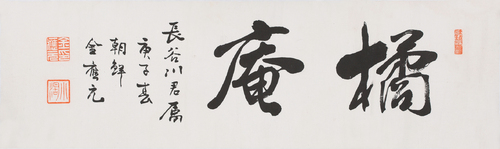 橘庵
長谷川君属
庚子春
朝鮮
金應元